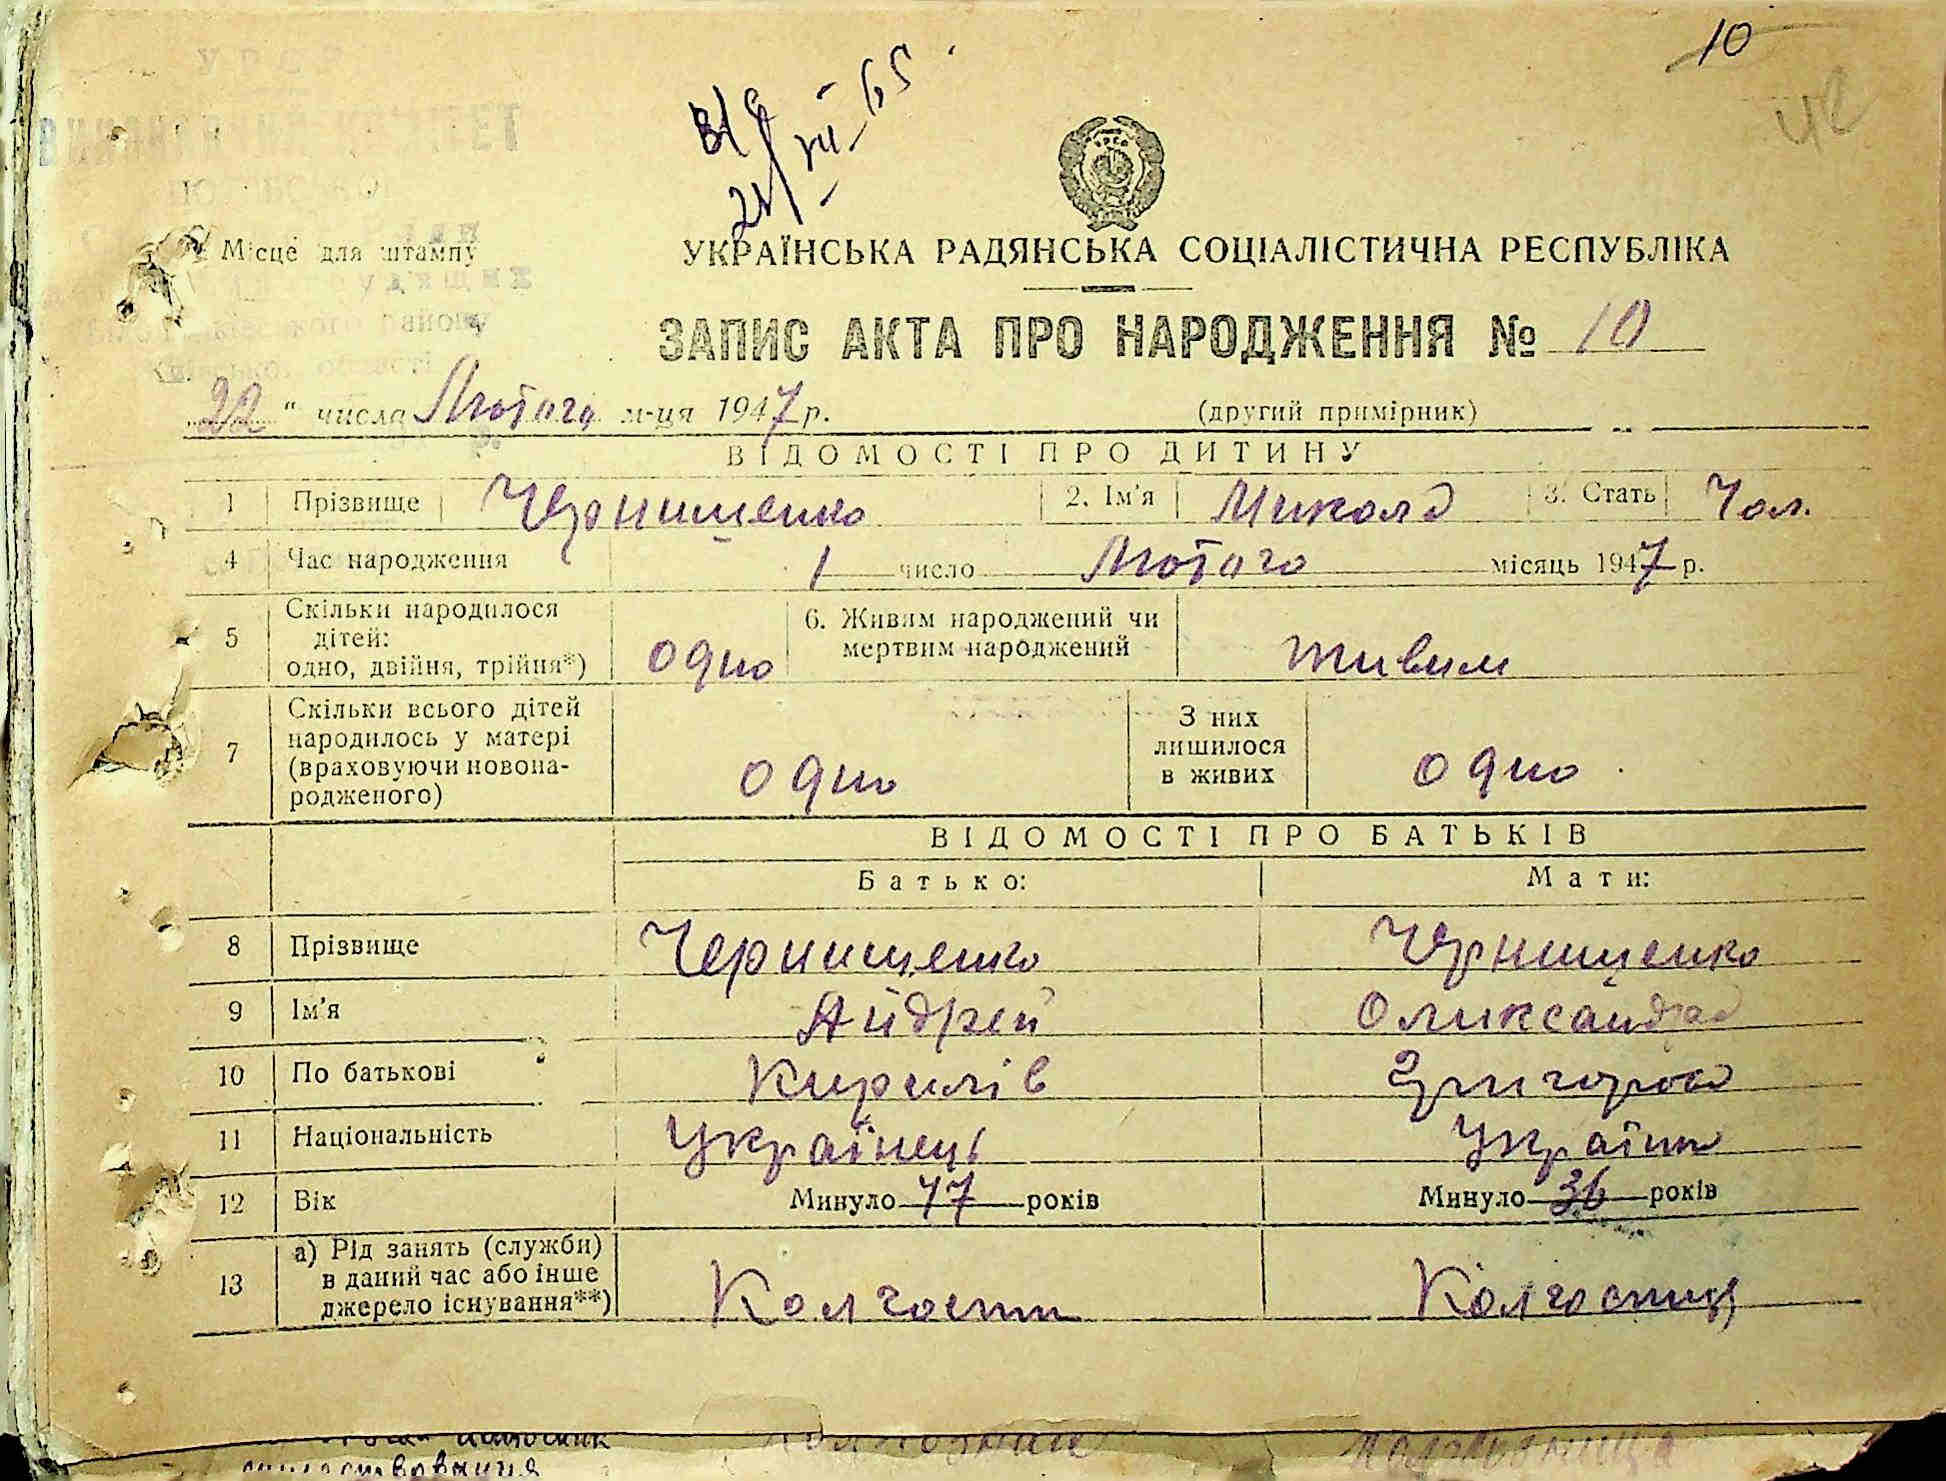 10
УРСР
21/VII-65
Місце для штампу
УКРАЇНСЬКА РАДЯНСЬКА СОЦІАЛІСТИЧНА РЕСПУБЛІКА
ЗАПИС АКТА ПРО НАРОДЖЕННЯ № 10
22 " числа Лютого м-ця 1947 р. (другий примірник)
ВІДОМОСТІ ПРО ДИТИНУ
1 Прізвище Чернищенко 2. Ім'я Микола 3. Стать Чол.
4 Час народження 1 число Лютого місяць 1947 р.
5 Скільки народилося дітей: одно, двійня, трійня*) одно 6. Живим народжений чи мертвим народжений живим
7 Скільки всього дітей народилось у матері (враховуючи новона-родженого) одно З них лишилося в живих одно
ВІДОМОСТІ ПРО БАТЬКІВ
Батько: Мати:
8 Прізвище Чернищенко Чернищенко
9 Ім'я Андрей Олександра
10 По батькові Кирилів
11 Національність Українець
12 Вік Минуло 47 років Минуло 36 років
13 а) Рід занять (служби) в даний час або інше джерело існування**) Колгоспн Колгоспниця